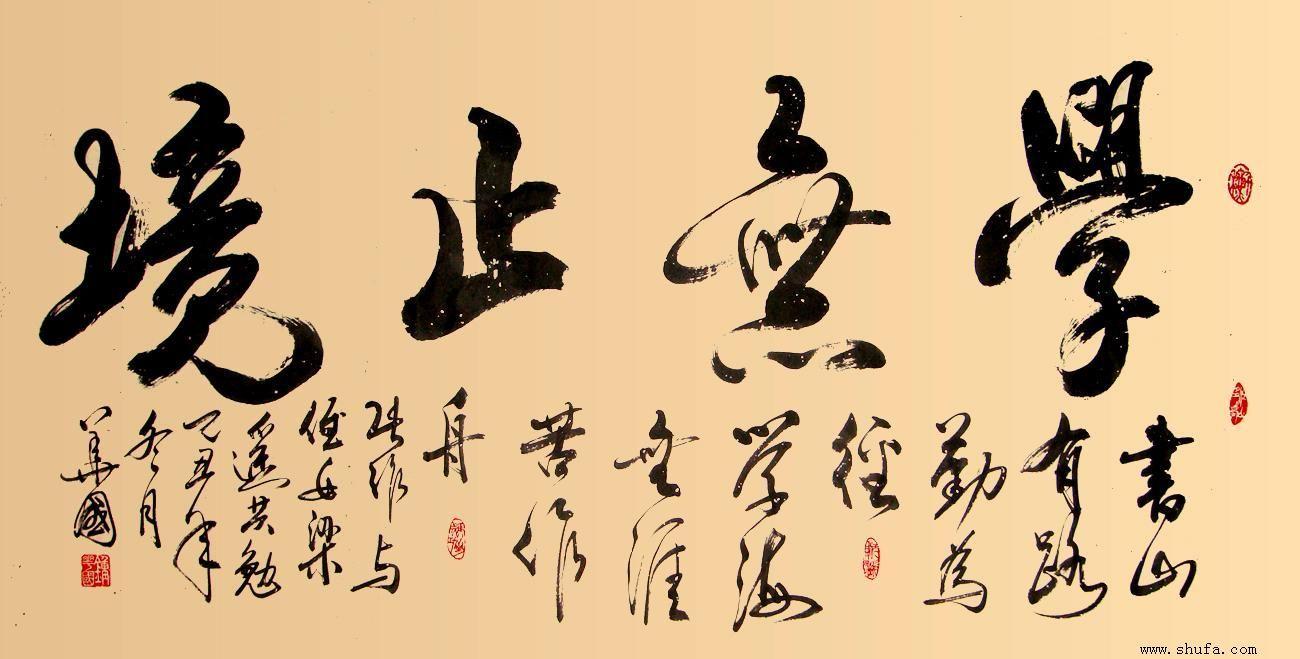 學無止境
書山
有路
勤為
徑
学海
無涯
苦作
舟
此作与
侄女梁
遥共勉
己丑年
冬月
華國
www.shufa.com